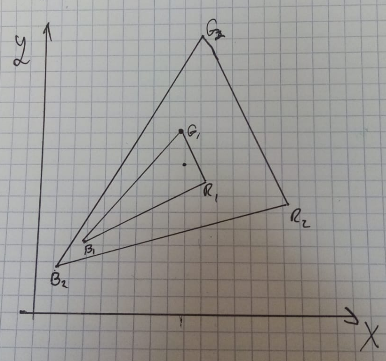 y
G2
G1
R1
R2
B1
B2
X